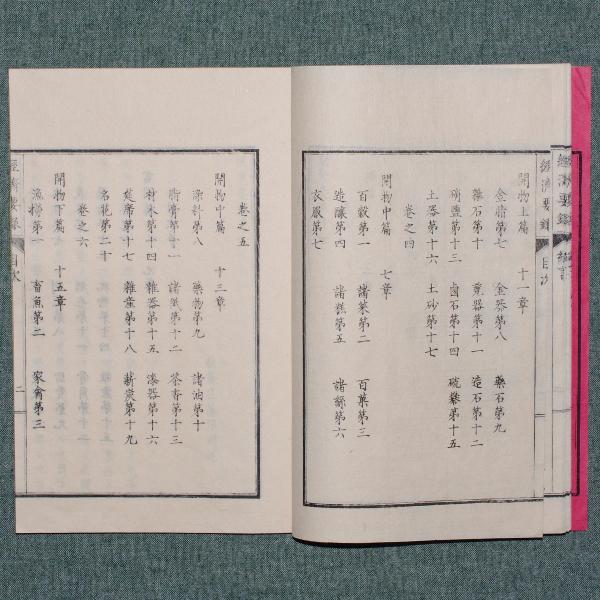 經濟要錄
開物上篇 十一章
金屑第七 金器第八 藥石第九
雜石第十 夏器第十一 造石第十二
硝鹽第十三 鹵石第十四 硫礬第十五
土器第十六 土砂第十七
卷之四
開物中篇 七章
百穀第一 諸菜第二 百菓第三
造釀第四 諸糕第五 諸 第六
衣服第七
經濟要錄 目次
卷之五
開物中篇 十三章
染料第八 藥物第九 諸油第十
脂膏第十一 諸漿第十二 茶香第十三
材木第十四 雜器第十五 漆器第十六
莚席第十七 雜 第十八 薪炭第十九
名花第二十
卷之六
開物下篇 十五章
漁撈第一 畜魚第二 家禽第三
經濟要錄 目次 二